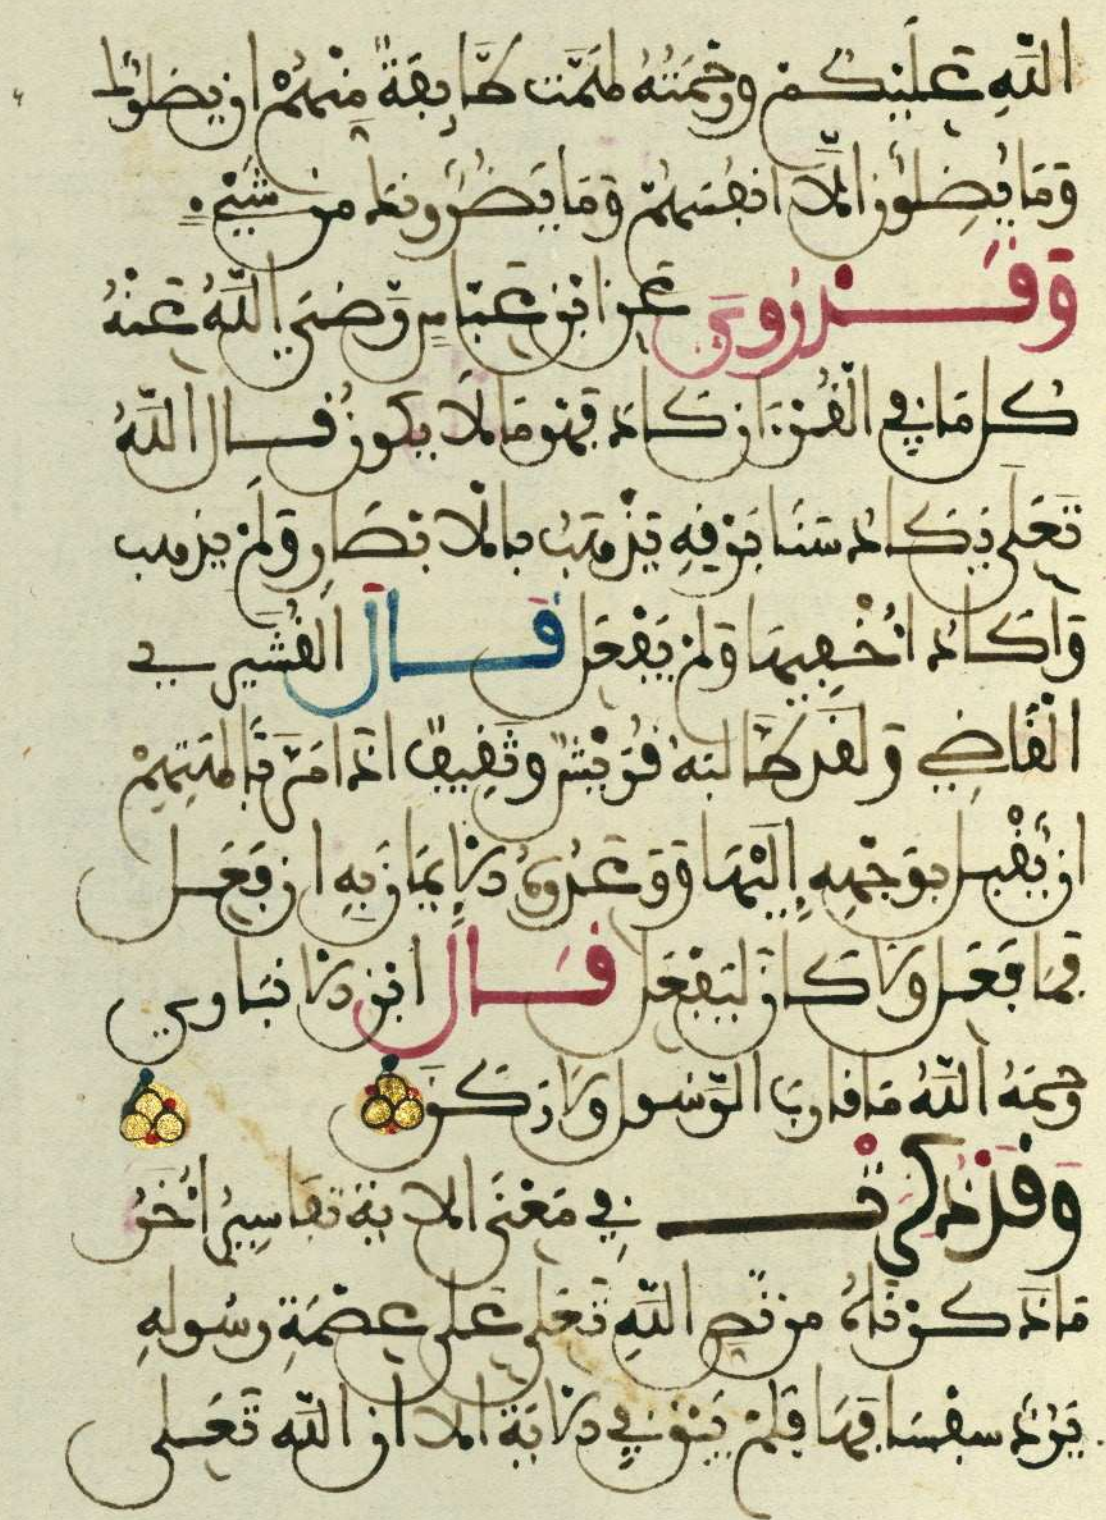 اللَّهِ عَلَيْكُمْ وَرَحْمَتُهُ لهَمَّت طَّايِفَةٌ مِّنْهُمْ ان يضلوك
وَمَا يُضِلُّونَ إلَّا انفسَهُمْ وَمَا يَضُرُّونَكَ من شَيْءٍ
وَقَدْ رُوِيَ عَنِ ابْنِ عَبَّاسٍ رَّضِيَ اللَّهُ عَنْهُ
كل مَا فِي الْقُرْءَانِ كَادَ فَهْوَ مَا لَا يكُونُ قال اللَّهُ
تَعَلَى يَكَادُ سَنَا بَرْقِهِ يَذْهَبُ بالْابْصَارِ وَلَمْ يَذهب
وَاكَادُ أُخْفِيهَا وَلَمْ يَفْعَل قَال القُشَيري
الْقَاضِي وَلقد طَالبَهُ قُرَيْشٌ وثَقِيفٌ اذ مَرَّ بِآلهتِهِمْ
ان يُقْبل بوَجْهِهِ إِلَيْهَا وَوَعَدُوهُ الإيمَانَ بِهِ ان فَعَل
فمَا فَعَل وَلَا كَانَ لِيَفْعَل قَال ابْن الانبَاري
رحمَهُ اللَّهُ مَا قاربَ الرَّسُول وَلَا رَكَن
وَقَدْ ذُكِرَتْ فِي مَعْنَى الايةِ تفَاسِيرُ أُخَرُ
مَا ذَكَرْنَاهُ من نَّصِ اللَّهِ تَعَلى عَلى عِصْمَةِ رسُولهِ
يَرُدُّ سفْسَافهَا فلمْ يَبْقَ فِي الايَةِ الا ان اللَّه تَعَلى